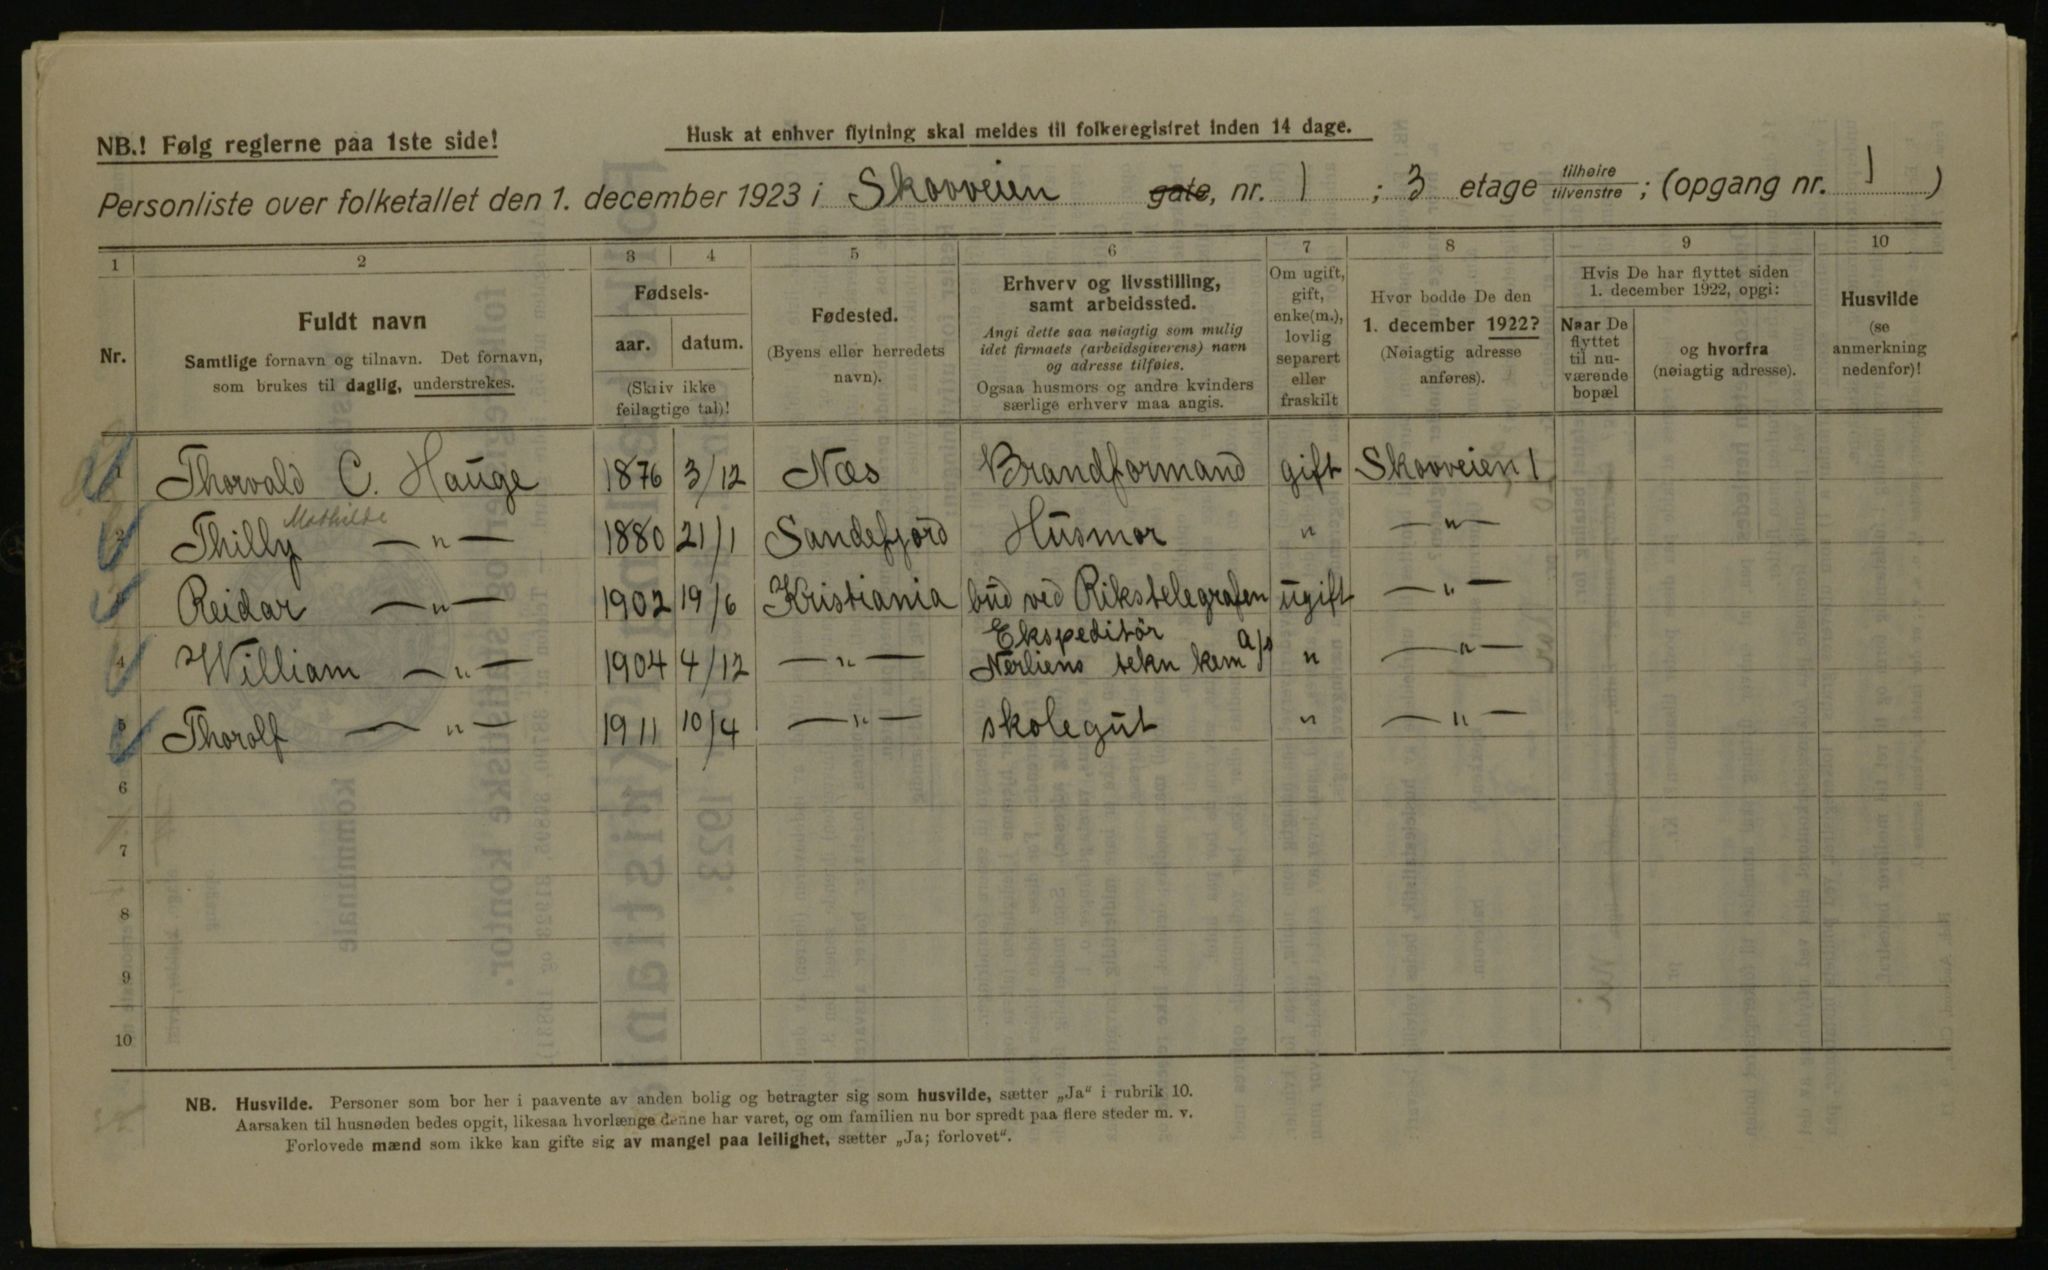 NB.! Følg reglerne paa 1ste side!
Husk at enhver flytning skal meldes til folkeregistret inden 14 dage.
Personliste over folketallet den 1. december 1923 i Skovveien gate, nr. 1 ; 3 etage tilhøire tilvenstre ; (opgang nr. 1 )
1 2 3 4 5 6 7 8 9 10
Nr.
Fuldt navn
Samtlige fornavn og tilnavn. Det fornavn,
som brukes til daglig, understrekes.
Fødsels-
aar. datum.
(Skriv ikke
feilagtige tal)!
Fødested.
(Byens eller herredets
navn).
Erhverv og livsstilling,
samt arbeidssted.
Angi dette saa nøiagtig som mulig
idet firmaets (arbeidsgiverens) navn
og adresse tilføies.
Ogsaa husmors og andre kvinders
særlige erhverv maa angis.
Om ugift,
gift,
enke(m.),
lovlig
separert
eller
fraskilt
Hvor bodde De den
1. december 1922?
(Nøiagtig adresse
anføres).
Hvis De har flyttet siden
1. december 1922, opgi:
Naar De
flyttet
til nu-
værende
bopæl
og hvorfra
(nøiagtig adresse).
Husvilde
(se
anmerkning
nedenfor)!
1 Thorvald C. Hauge 1876 3/12 Næs Brandformand gift Skovveien 1
Mathilde
2 Thilly — " — 1880 21/1 Sandefjord Husmor " — " —
Reidar — " — 1902 19/6 Kristiania bud ved Rikstelegrafen ugift — " —
Ekspeditør
4 William — " — 1904 4/12 — " — Nerliens tekn kem A/s " — " —
5 Thorolf — " — 1911 10/4 — " — skolegut " — " —
6
7
8
9
10
NB. Husvilde. Personer som bor her i paavente av anden bolig og betragter sig som husvilde, sætter „Ja“ i rubrik 10.
Aarsaken til husnøden bedes opgit, likesaa hvorlænge denne har varet, og om familien nu bor spredt paa flere steder m. v.
Forlovede mænd som ikke kan gifte sig av mangel paa leilighet, sætter „Ja; forlovet“.